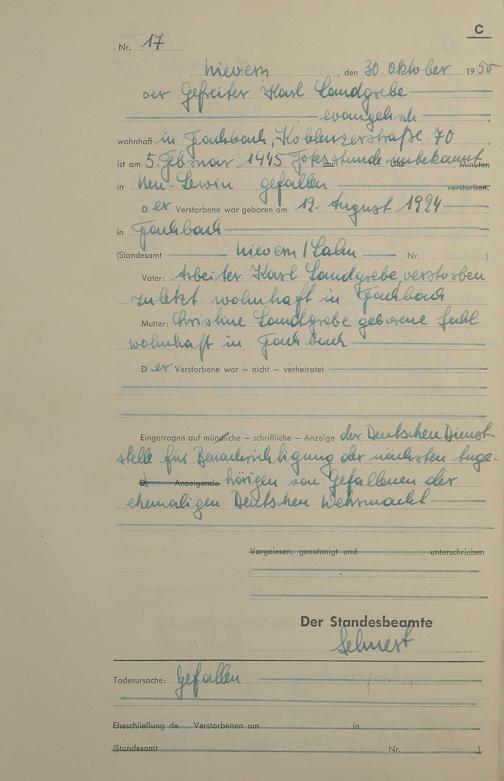 C
Nr. 17
Nievern, den 30. Oktober 1950
Der Gefreiter Karl Landgrebe
evangelisch
wohnhaft in Fachbach, Koblenzerstraße 70
ist am 5. Februar 1945 Todesstunde unbekannt um Uhr Minuten
in Neu-Lewin gefallen verstorben.
Der Verstorbene war geboren am 12. August 1924
in Fachbach
(Standesamt Nievern/Lahn Nr. )
Vater: Arbeiter Karl Landgrebe, verstorben
zuletzt wohnhaft in Fachbach
Mutter: Christine Landgrebe geborene
wohnhaft in Fachbach
Der Verstorbene war – nicht – verheiratet
Eingetragen auf mündliche – schriftliche – Anzeige der Deutschen Dienst-
stelle für Benachrichtigung der nächsten Ange-
D. Anzeigende hörigen von Gefallenen der
ehemaligen Deutschen Wehrmacht
Vorgelesen, genehmigt und unterschrieben
Der Standesbeamte
Todesursache: Gefallen
Eheschließung de Verstorbenen am in
(Standesamt Nr. )